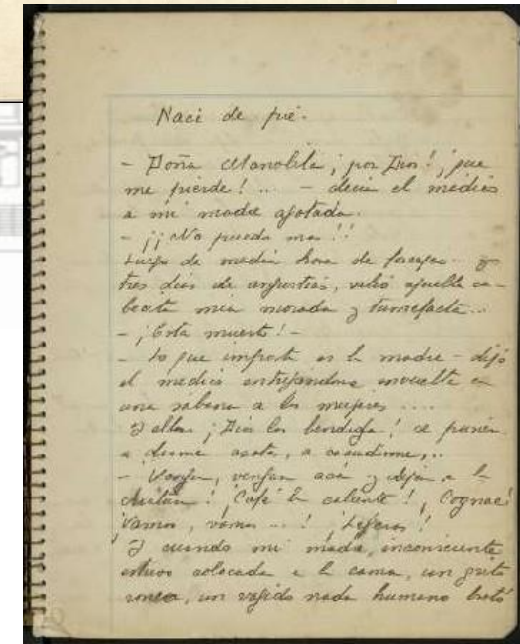 Nací de pié.
- Doña Manolita ¡por Dios!, ¡que
me pierde! .. - decía el médico
a mi madre agotada.
- ¡¡No puedo mas!!
Luego de media hora de forcejeo .. y
tres días de angustias, salió aquella ca-
becita mía morada y tumefacta ..
- ¡Está muerta! -
- Lo que importa es la madre - dijo
el médico entregándome envuelta en
una sábana a las mujeres ....
Y ellas ¡Dios las bendiga! se ponen
a darme azotes, a sacudirme, ..
- Vengan, vengan acá y dejen a la
! Café bien caliente!, Cognac!
Vamos, vamos ... ! Ligeras!
Y cuando mi madre, inconsciente
estuvo colocada en la cama, un grito
ronco, un vagido nada humano brotó